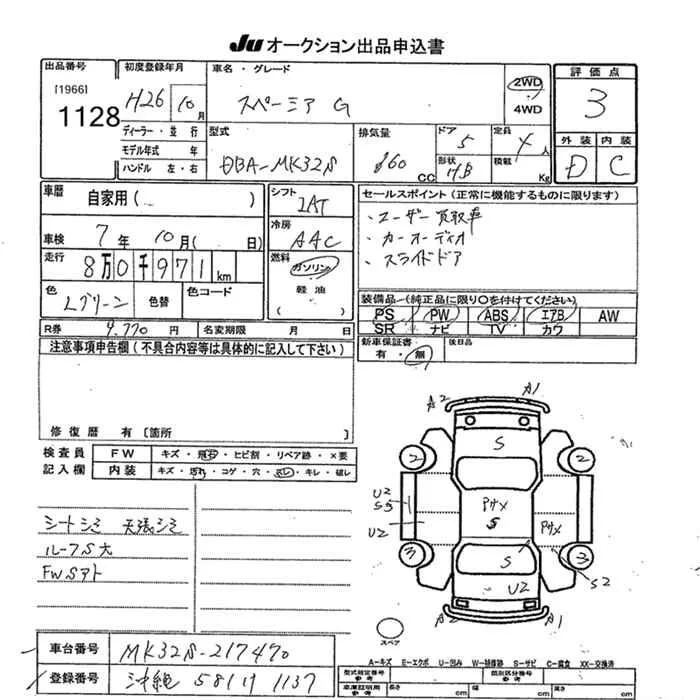 JU オークション出品申込書
出品番号 初度登録年月 車名・グレード 評価点
[1966]
1128
H26 10月
スペーシア G
2WD
4WD
3
ディーラー・並行
モデル年式 年
ハンドル 左・右
型式 排気量 ドア 定員
DBA-MK32S 660 CC
5 4人
形状 積載
HB Kg
外装 内装
D C
車歴 自家用( )
シフト IAT
セールスポイント(正常に機能するものに限ります)
・ユーザー買取車
・カーオーディオ
・スライドドア
車検 7年10月( 日)
冷房 AAC
走行 8万0千971km
燃料 ガソリン
軽油
( )
色 Lグリーン 色替 色コード
装備品(純正品に限り○を付けてください)
PS PW ABS エアB AW
SR ナビ TV カワ
R券 9,770円 名変期限 月 日
新車保証書 有・無 後日品
注意事項申告欄(不具合内容等は具体的に記入して下さい)
修復歴 有〔箇所 〕
検査員 FW キズ・飛石・ヒビ割・リペア跡・×要
記入欄 内装 キズ・汚れ・コゲ・穴・スレ・キレ・破レ
シートシミ 天張シミ
ルーフS大
FWSアト
A2 A1
S
2 2
U2
S3
U2
Pサメ
S
Pサメ
3 3
S
U2
S2
A2 A1
スペア
A-キズ E-エクボ U-凹み W-補修跡 S-サビ C-腐食 XX-交換済
車台番号 MK32S-217470
登録番号 沖縄 581 1137
型式指定番号 参考 類別区分番号 参考
車庫証明用 参考 長さ cm 幅 cm 高さ cm